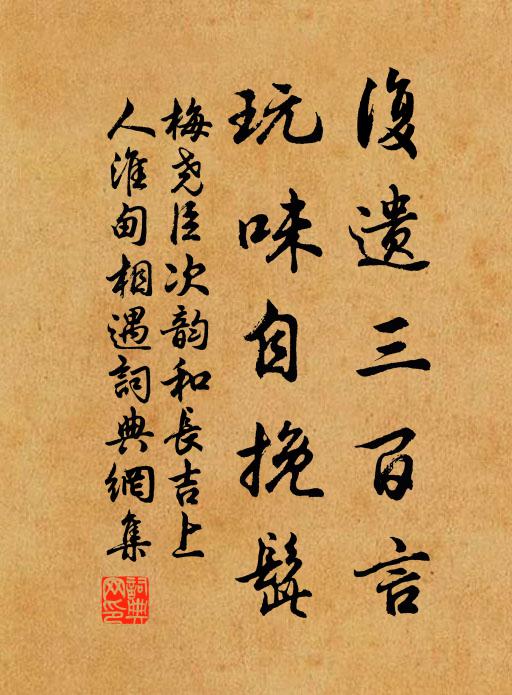 復遺三百言
玩味自挽髭
梅堯臣次韵和長吉上
人淮甸相遇詞典網集
詞典網印